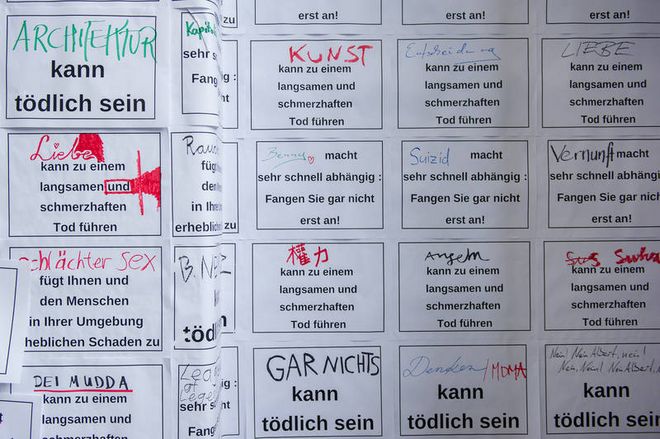 ARCHITEKTUR
kann
tödlich sein
sehr s
Fange
erst an!
erst an!
erst an!
Liebe
kann zu einem
langsamen und
schmerzhaften
Tod führen
fügt
der
in Ihre
erheblichen
zu
KUNST
kann zu einem
langsamen und
schmerzhaften
Tod führen
Entscheidung
kann zu einem
langsamen und
schmerzhaften
Tod führen
LIEBE
kann zu einem
langsamen und
schmerzhaften
Tod führen
Benny macht
sehr schnell abhängig :
Fangen Sie gar nicht
erst an!
Suizid macht
sehr schnell abhängig :
Fangen Sie gar nicht
erst an!
Vernunft macht
sehr schnell abhängig :
Fangen Sie gar nicht
erst an!
schlächter sex
fügt Ihnen und
den Menschen
in Ihrer Umgebung
heblichen Schaden zu
tödl
權力
kann zu einem
langsamen und
schmerzhaften
Tod führen
Angeln
kann zu einem
langsamen und
schmerzhaften
Tod führen
kann zu einem
langsamen und
schmerzhaften
Tod führen
DEI MUDDA
kann zu einem
langsamen und
schmerzhaften
sehr s
Fang
GAR NICHTS
kann
tödlich sein
Denken/MDMA
kann
tödlich sein
Nein! Nein Albert, nein!
Nein, Nein! Nein Albert,
kann
tödlich sein